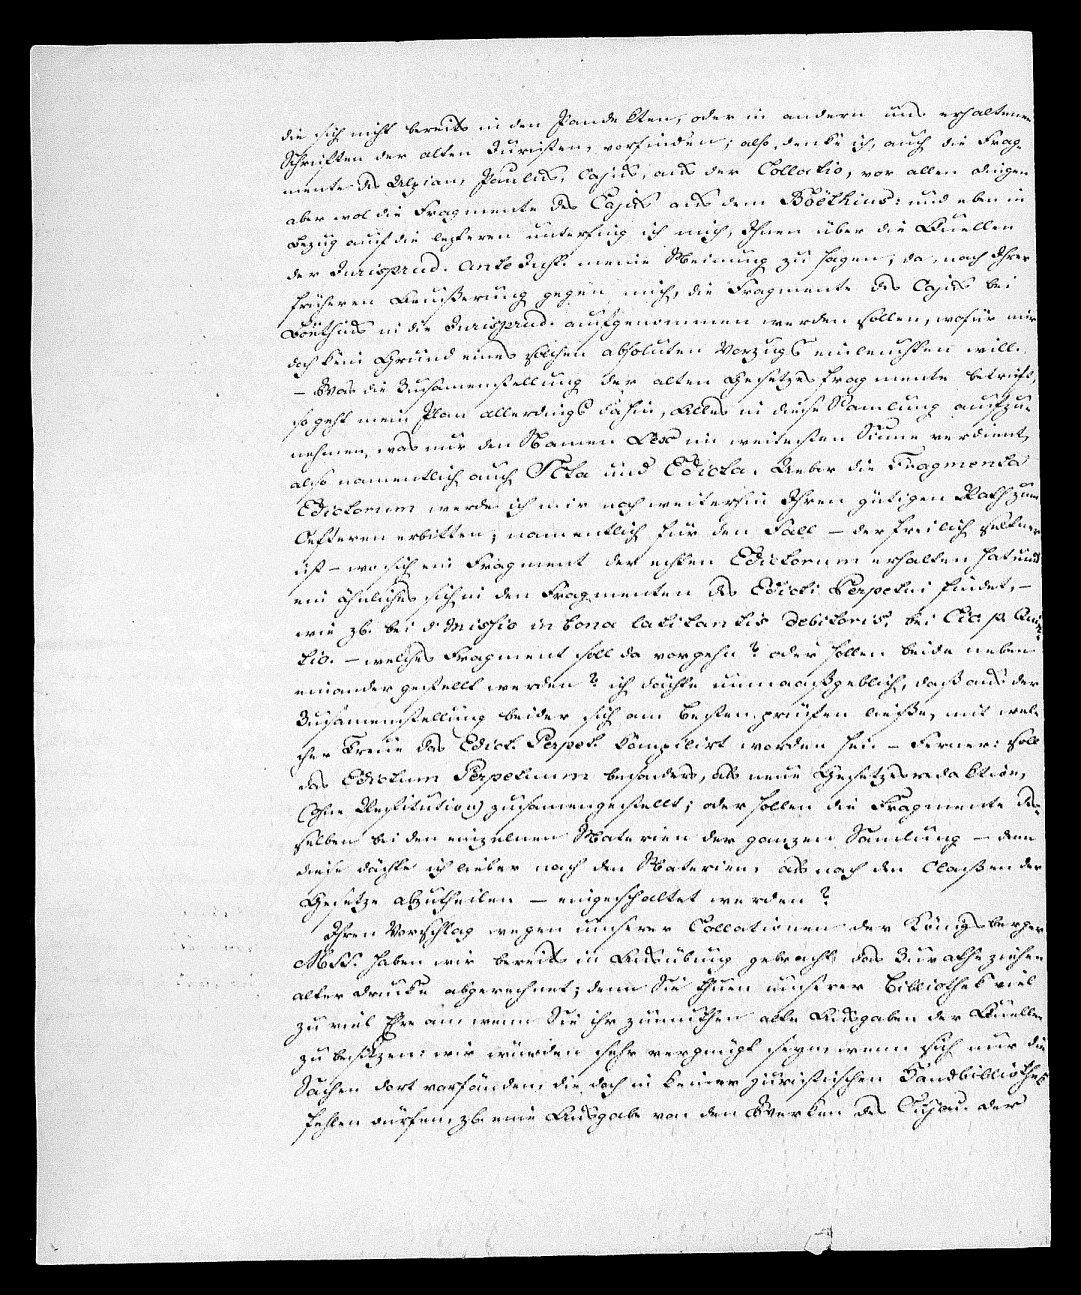 die sich nicht bereits in den Pandekten, oder in andern uns erhaltenen
Schriften der alten Juristen, vorfinden; also, denke ich, auch die Frag-
mente des Ulpian, Paulus, Cajus, aus der Collatio, vor allen Dingen
aber wol die Fragmente des Cajus aus dem Boëthius: und eben in
Bezug auf die lezteren unterfing ich mich, Ihnen über die Quellen
der Jurisprud. Antejust. meine Meinung zu sagen; da, nach Ihrer
früheren Aeusserung gegen mich, die Fragmente des Cajus bei
Boëthius in die Jurisprud. aufgenommen werden sollen, wofür mir
doch kein Grund eines solchen absoluten Vorzugs einleuchten will.
– Was die Zusammenstellung der alten Gesetzesfragmente betrift,
so geht mein Plan allerdings dahin, Alles in diese Samlung aufzu-
nehmen, was nur den Namen Lex im weitesten Sinne verdient,
also namentlich auch SCta und Edicta. Ueber die Fragmenta
Edictorum werde ich mir noch weiterhin Ihren gütigen Rath zum
Oefteren erbitten; namentlich für den Fall – der freilich seltner
ist – wo sich ein Fragment der echten Edictorum erhalten hat und
ein ähnliches sich in den Fragmenten des Edicti Perpetui findet, –
wie zb. bei d missio in bona latitantis debitoris, bei Cic. p. Quinc-
tio. – welches Fragment soll da vorgehn? oder sollen beide neben
einander gestellt werden? ich dächte unmaassgeblich, dass aus der
Zusamenstellung beider sich am besten prüfen liesse, mit wel-
cher Treue das Edict. Perpet. compilirt worden sei. – Ferner: soll
das Edictum Perpetuum besonders, als neue Gesetzesredaktion,
(ohne Restitution) zusamengestellt; oder sollen die Fragmente des-
selben bei den einzelnen Materien der ganzen Samlung – denn
diese dächte ich lieber nach den Materien, als nach den Classen der
Gesetze abzutheilen – eingeschaltet werden?
Ihren Vorschlag wegen unserer Collationen der Königsberger
MSS. haben wir bereits in Ausübung gebracht, das Zurathe ziehen
alter Drucke abgerechnet; denn Sie thuen unserer Bibliothek viel
zu viel Ehre an wenn Sie ihr zumuthen alte Ausgaben der Quellen
zu besitzen: wir würden sehr vergnügt seyn, wenn sich nur die
Sachen dort vorfänden, die doch in keiner juristischen Handbibliothek
fehlen dürfen, zb. eine Ausgabe von den Werken des Cujaz. der